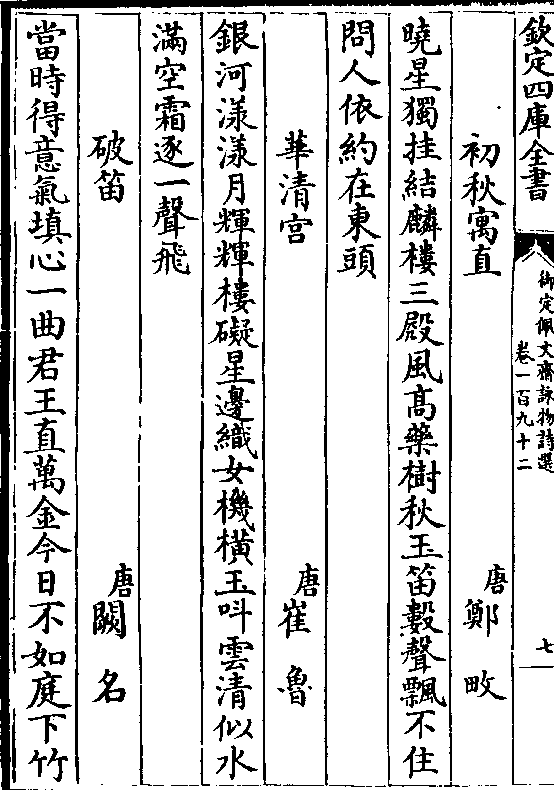 欽定四庫全書
御定佩文齋詠物詩選
卷一百九十二
七
初秋寓直
唐鄭畋
曉星獨挂結麟樓三殿風髙藥樹秋玉笛數聲飄不住
問人依約在東頭
華清宫
唐崔魯
銀河漾漾月輝輝樓礙星邊織女機橫玉呌雲清似水
滿空霜逐一聲飛
破笛
唐闕名
當時得意氣填心一曲君王直萬金今日不如庭下竹